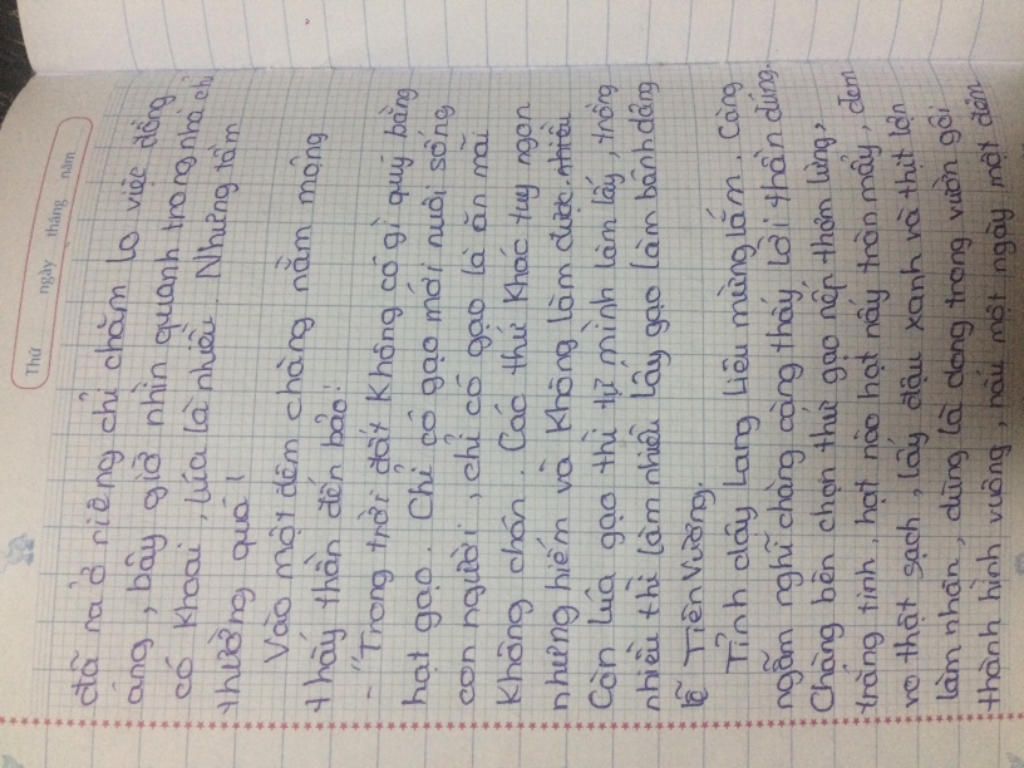 Thứ ngày tháng năm
đã ra ở riêng chỉ chăm lo việc đồng
áng, bây giờ nhìn quanh trong nhà chỉ
có khoai, lúa là nhiều. Nhưng tầm
thường quá!
Vào một đêm chàng nằm mộng
thấy thần đến bảo:
- "Trong trời đất không có gì quý bằng
hạt gạo. Chỉ có gạo mới nuôi sống
con người, chỉ có gạo là ăn mãi
không chán. Các thứ khác tuy ngon
nhưng hiếm và không làm được nhiều.
Còn lúa gạo thì tự mình làm lấy, trồng
nhiều thì làm nhiều lấy gạo làm bánh dâng
lễ Tiên Vương.
Tỉnh dậy Lang Liêu mừng lắm. Càng
ngẫm nghĩ chàng càng thấy lời thần đúng.
Chàng bèn chọn thứ gạo nếp thơm lừng,
trắng tinh, hạt nào hạt nấy tròn mẩy, đem
vo thật sạch, lấy đậu xanh và thịt lợn
làm nhân, dùng lá dong trong vườn gói
thành hình vuông, nấu một ngày một đêm